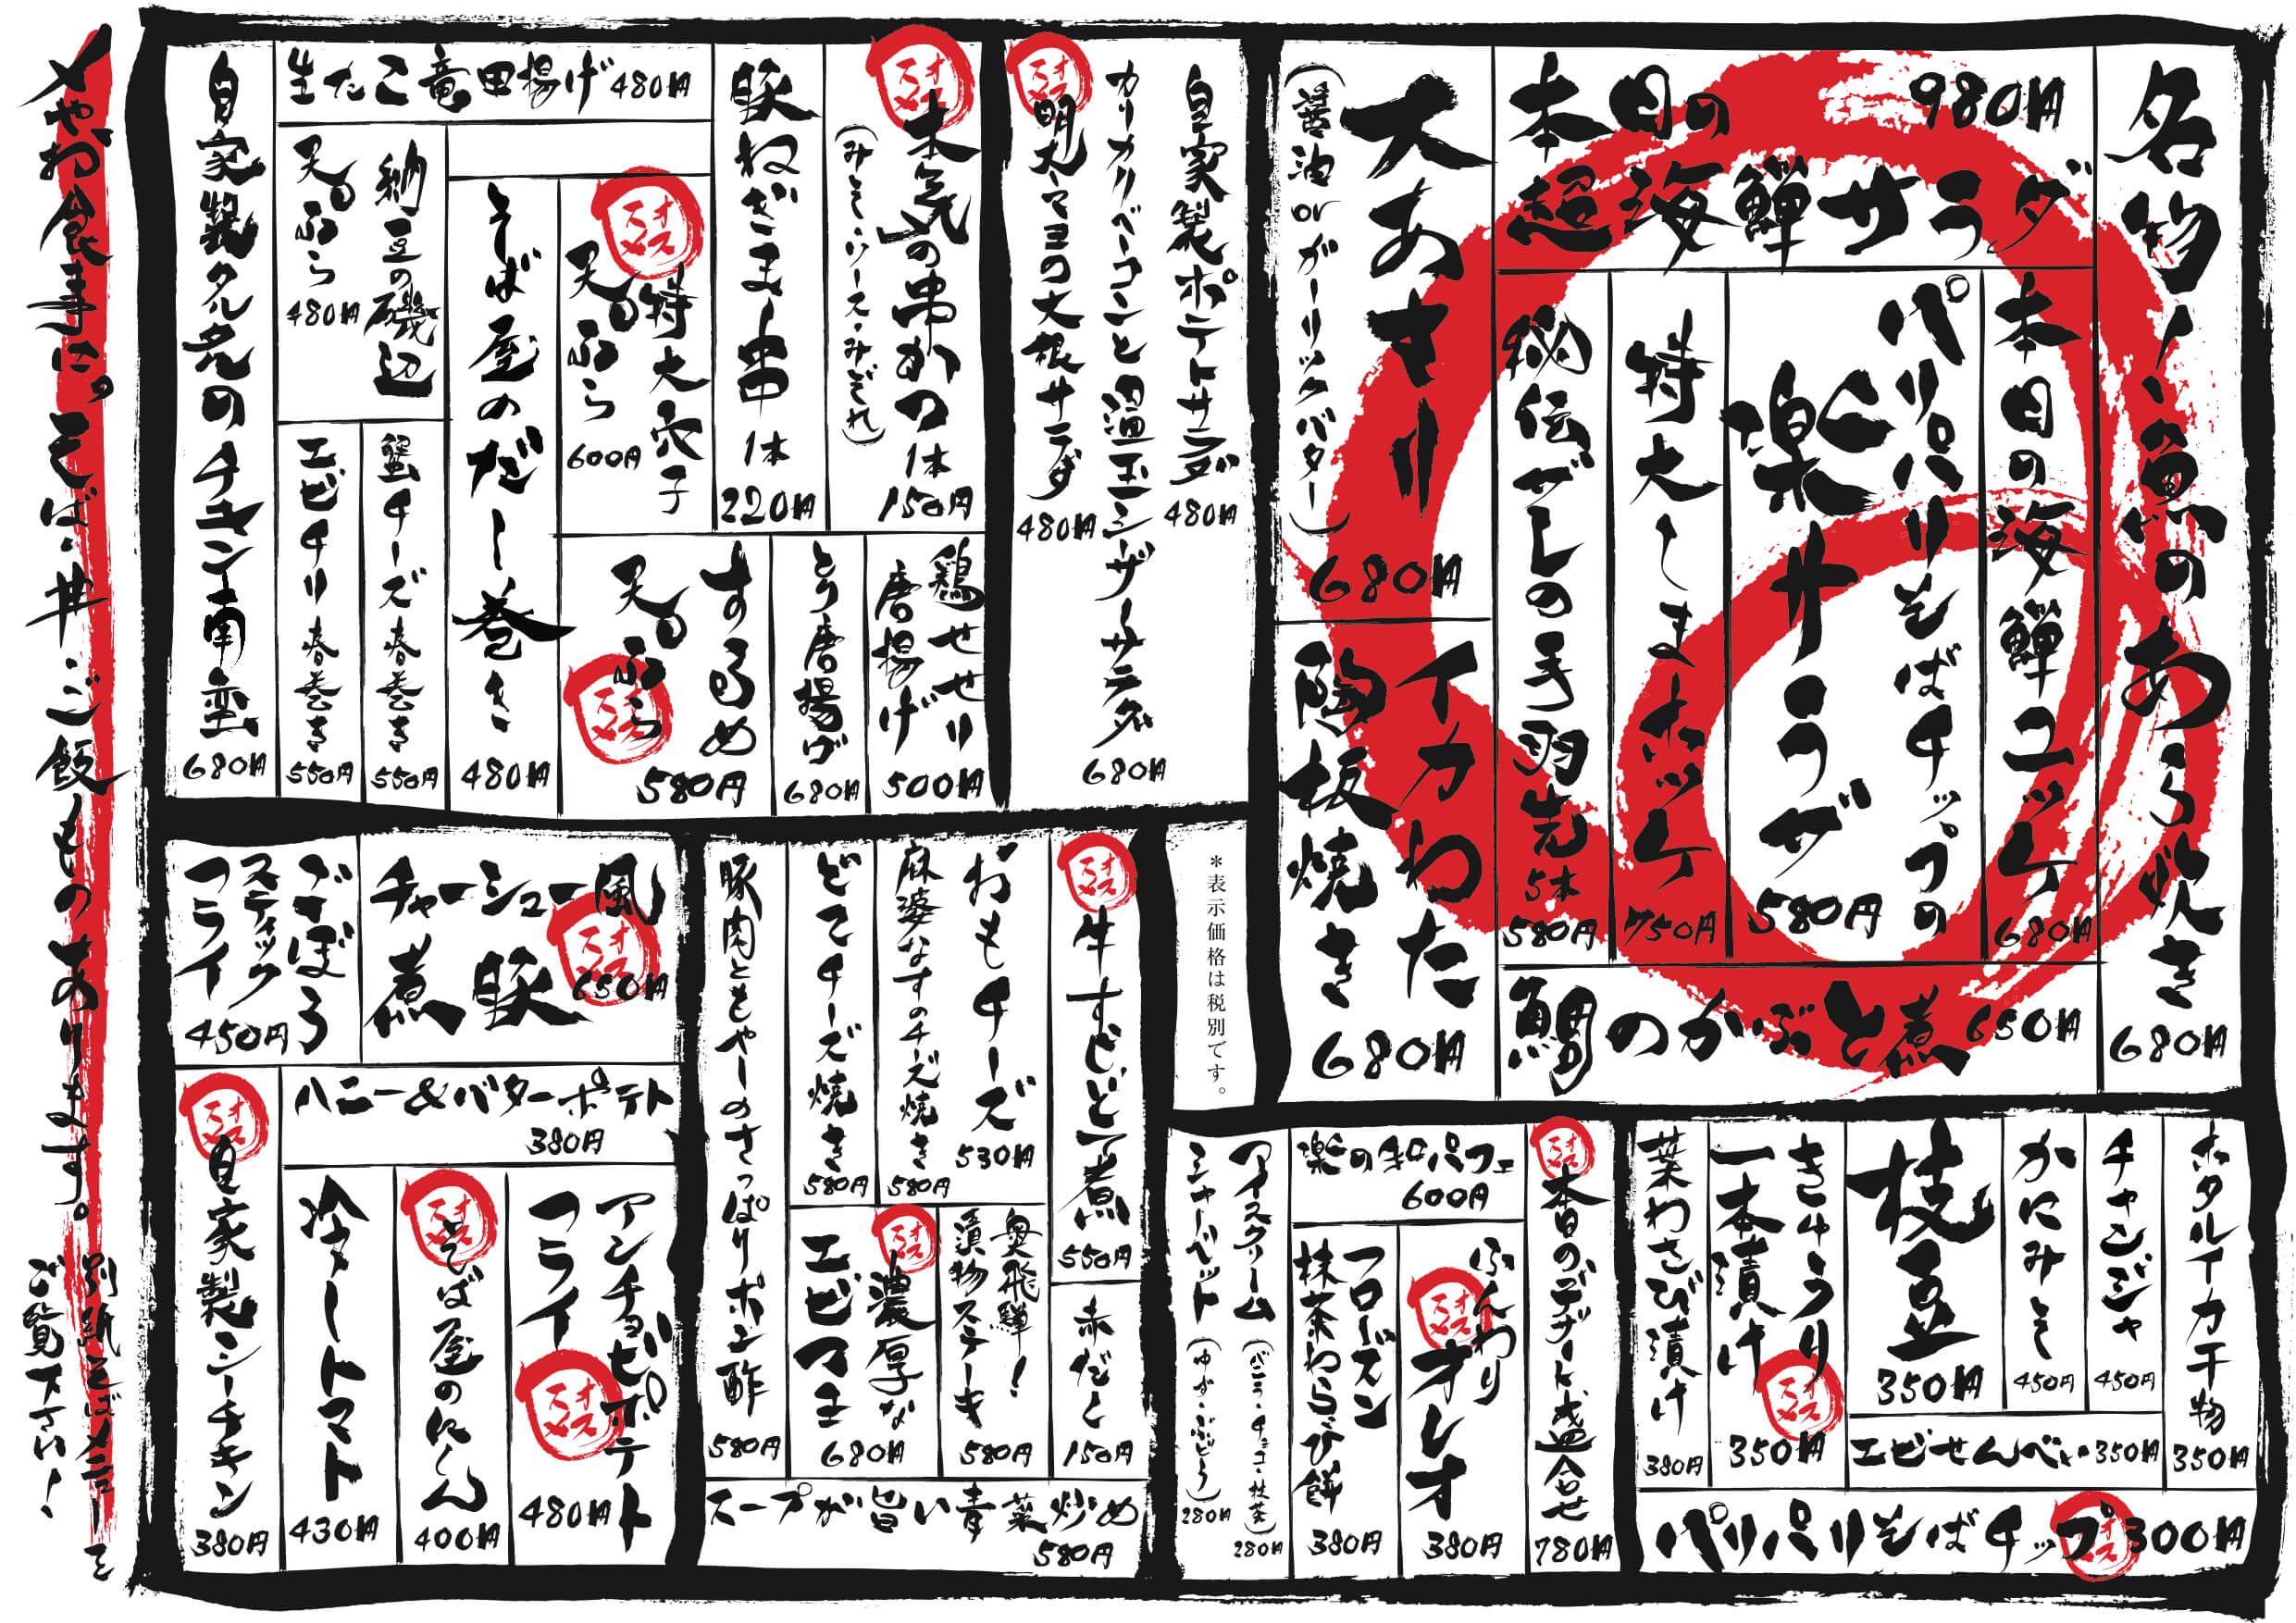 名物!魚のあら炊き
680円
本日の
980円
超海鮮サラダ
本日の海鮮ユッケ
680円
パリパリそばチップの
楽サラダ
580円
特大しまホッケ
750円
秘伝ダレの手羽先
5本
580円
鯛のかぶと煮
650円
大あさり
(醤油orガーリックバター)
680円
イカわた
陶板焼き
680円
自家製ポテトサラダ
480円
カリカリベーコンと温玉シーザーサラダ
680円
オススメ
明太マヨの大根サラダ
480円
オススメ
本気の串かつ
1本
150円
(みそ・ソース・みぞれ)
豚ねぎま串
1本
220円
鶏せせり
唐揚げ
500円
とり唐揚げ
680円
するめ
天ぷら
オススメ
580円
生たこ竜田揚げ 480円
オススメ
特大穴子
天ぷら
600円
そば屋のだし巻き
480円
納豆の磯辺
天ぷら
480円
蟹チーズ春巻き
550円
エビチリ春巻き
550円
自家製タルタルのチキン南蛮
680円
*表示価格は税別です。
オススメ
牛すじどて煮
550円
赤だし
150円
おもチーズ
530円
麻婆なすのチーズ焼き
580円
どてチーズ焼き
580円
奥飛騨!
漬物ステーキ
580円
オススメ
濃厚な
エビマヨ
680円
豚肉ともやしのさっぱりポン酢
580円
スープが旨い青菜炒め
580円
チャーシュー風
煮豚
オススメ
650円
ごぼう
スティック
フライ
450円
ハニー&バターポテト
380円
アンチョビポテト
フライ
オススメ
480円
オススメ
そば屋のにしん
400円
冷しトマト
430円
オススメ
自家製シーチキン
380円
ホタルイカ干物
350円
チャンジャ
450円
かにみそ
450円
枝豆
350円
エビせんべい 350円
きゅうり
一本漬け
オススメ
350円
葉わさび漬け
380円
パリパリそばチップ
オススメ
300円
オススメ
本日のデザート盛合せ
780円
楽の和パフェ
600円
ふんわり
オススメ
オレオ
380円
フローズン
抹茶わらび餅
380円
アイスクリーム
(バニラ・チョコ・抹茶)
280円
シャーベット
(ゆず・ぶどう)
280円
〆やお食事に。そば・丼・ご飯ものあります。
別紙そばメニューを
ご覧下さい!